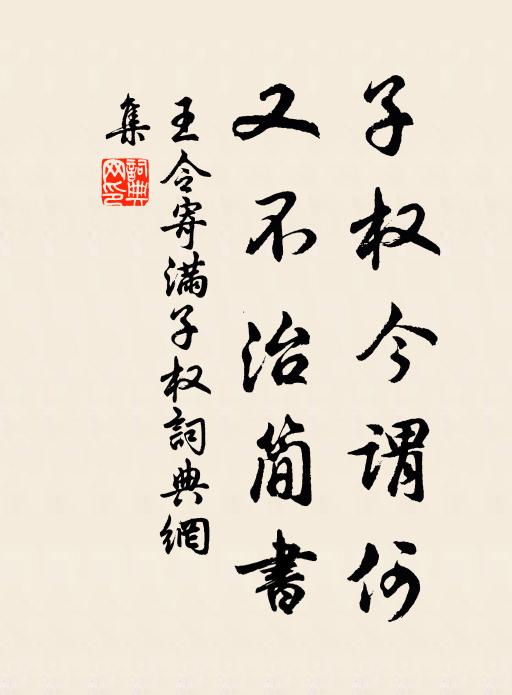 子权今謂何
又不治简書
王令寄滿子权詞典網
集
詞典網印